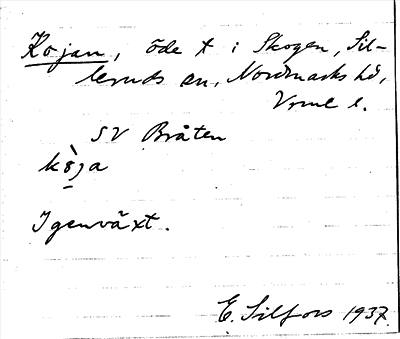 Kojan, öde t i Skogen, Sil-
leruds sn, Nordmarks hd,
Vrml l.
SV Bråten
kò̱ja
Igenväxt.
E. Silfors 1937.